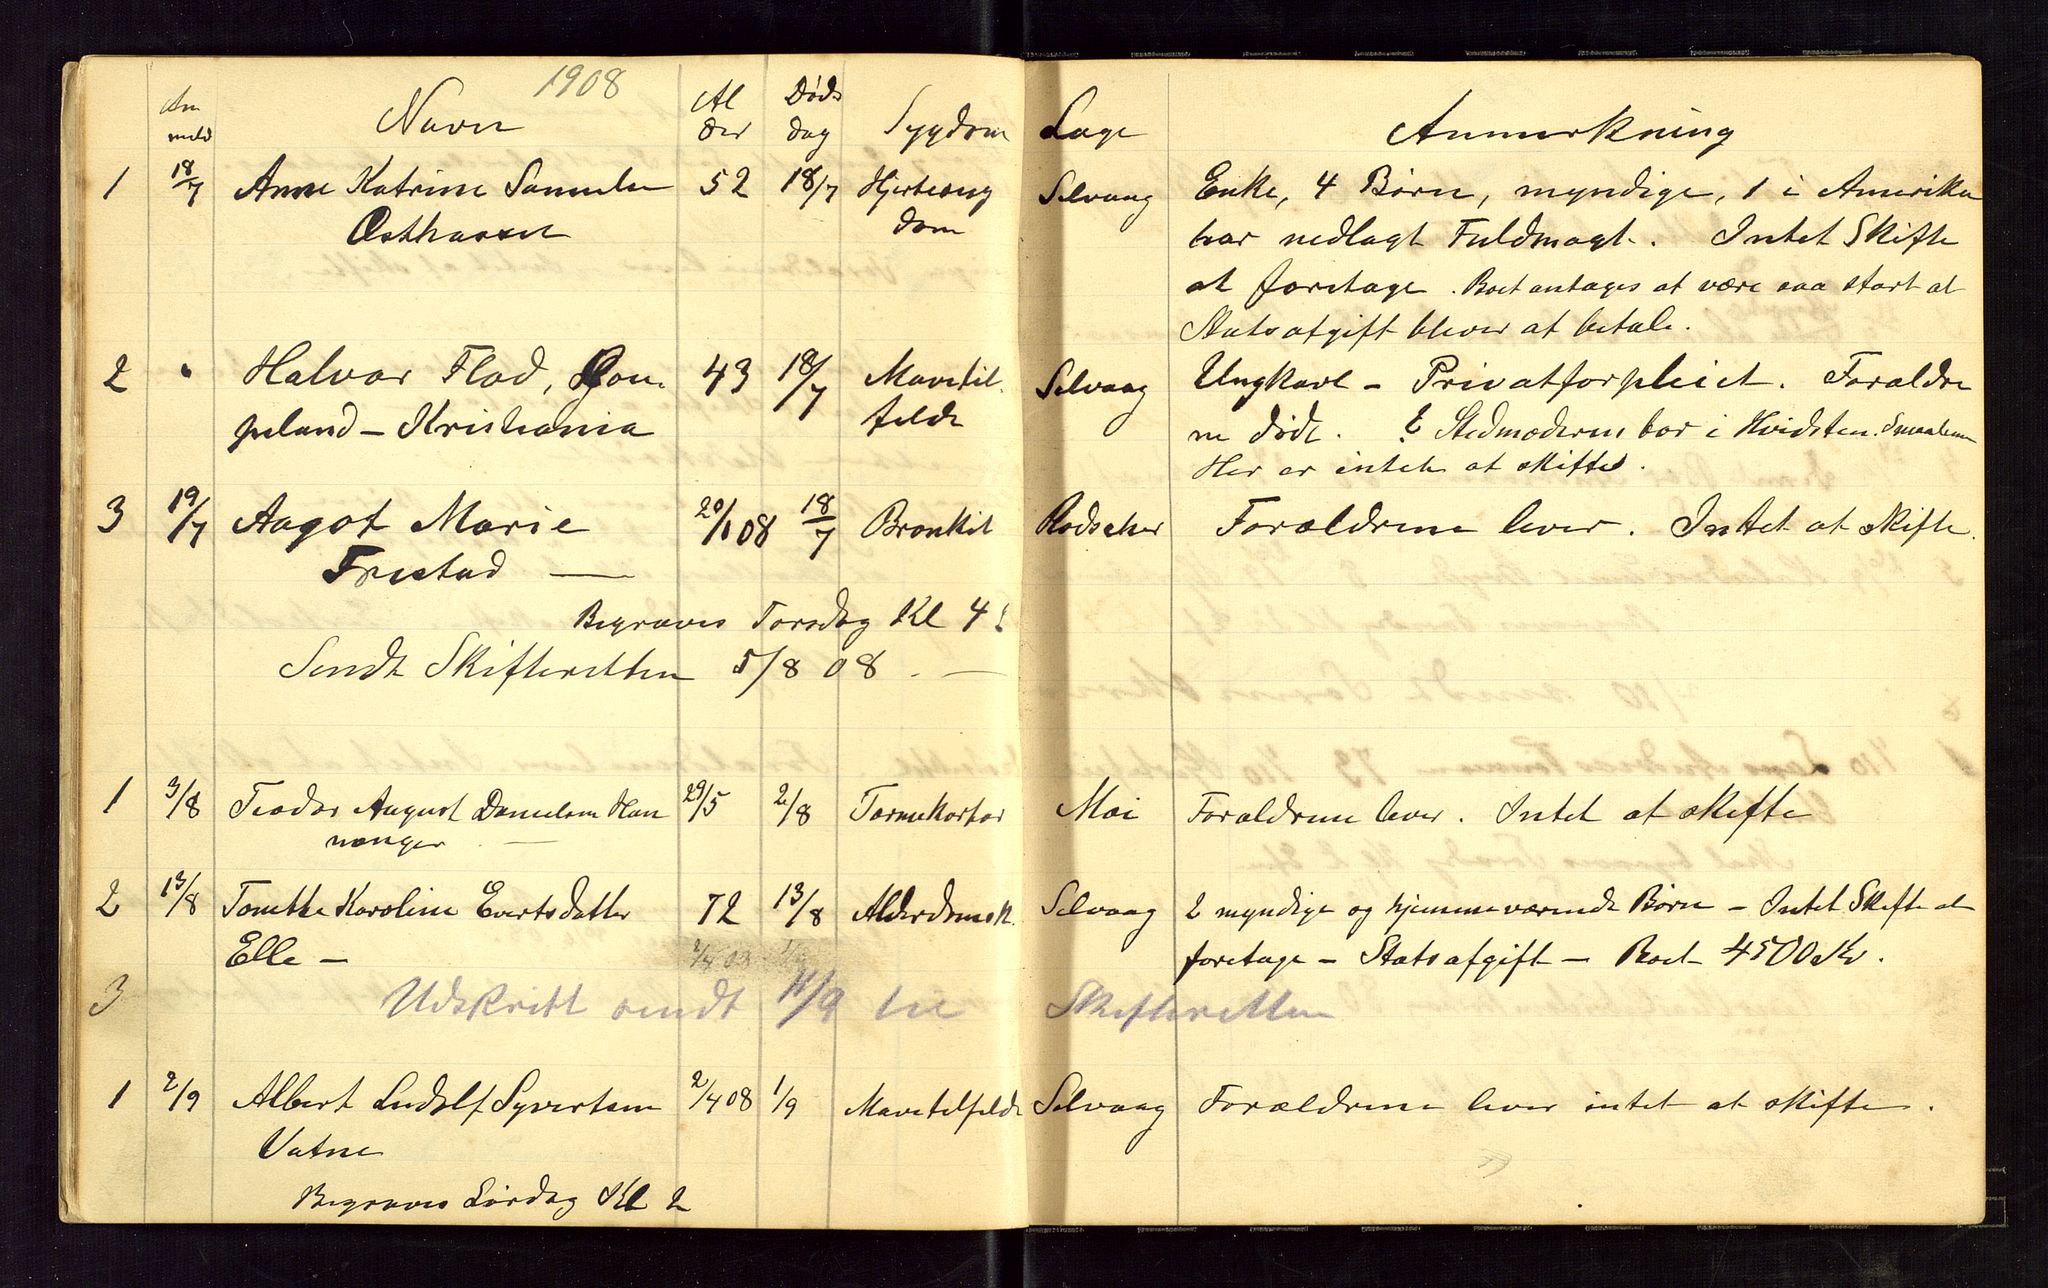 1908
An
meld
Navn
Al
der
Døds
dag
Sygdom
Læge
Anmerkning
1 18/7 Anne Katrine Samuels 52 18/7 Hjertesyg Selvaag Enke, 4 Børn, myndige, 1 i Amerika
Østhassel dom har nedlagt Fuldmagt. Intet Skifte
at foretage. Boet antages at være saa stort at
Statsafgift bliver at betale.
2 " Halvor Flad, 43 18/7 Mavetil Selvaag Ungkarl – Privatforpleiet. Forældre
peland – Kristiania fælde ne døde. Stedmoderen bor i Hvidsten.
Her er intet at skiftes.
3 19/7 Aagot Marie 20/1 08 18/7 Bronkit Rodscher Forældrene lever. Intet at skifte.
Frestad —
Begraves Torsdag Kl 4
Sendt Skifteretten 5/8 08. —
1 3/8 Teodor August Danielsen Han 29/5 2/8 Tarmkatar Moi Forældrene lever. Intet at skifte
nanger —
2 13/8 Tonette Karoline Evertsdatter 72 13/8 Alderdomsk. Selvaag 2 myndige og hjemmeværende Børn – Intet Skifte at
Elle – 2/4 08 1/9 foretage – Statsafgift – Boet 4500 Kr.
3 Udskrift sendt 11/9 til Skifteretten
1 2/9 Albert Ludolf Syvertsen 2/4 08 1/9 Mavetilfælde Selvaag Forældrene lever intet at skifte.
Vatne
Begraves Lørdag Kl 2